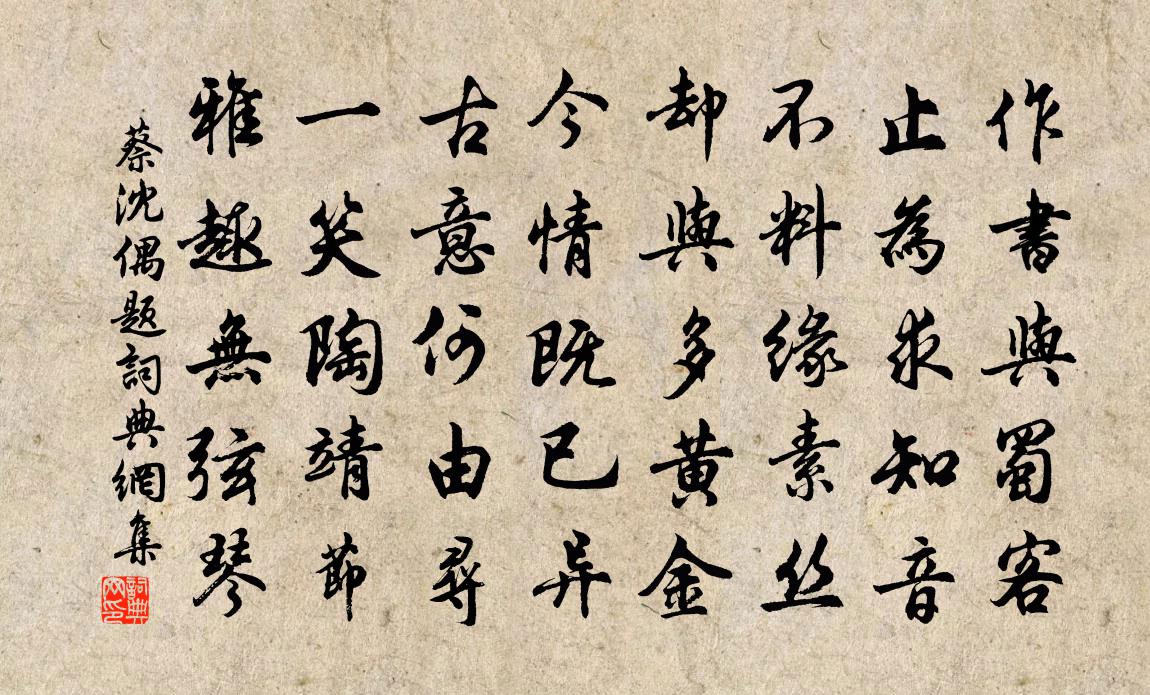 作書與蜀客
止為求知音
不料緣素丝
却與多黄金
今情既已异
古意何由尋
一笑陶靖節
雅趣無弦琴
蔡沈偶题詞典網集
詞典网印